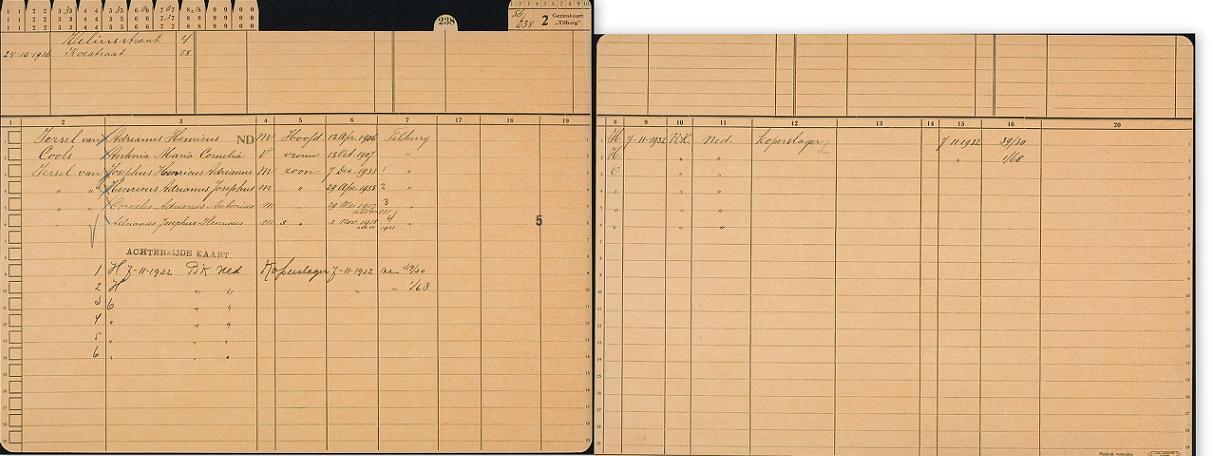 238
56
238 2 Gezinskaart
„Tilburg"
Kelinsstraat 4
24-10-1936 Koestraat 58
1 2 3 4 5 6 7 12 17 18 19
Iersel van Adrianus Henricus ND M Hoofd 12 Apr. 1906 Tilburg
Cools Antonia Maria Cornelia V vrouw 18 Oct. 1907 "
Iersel van Josephus Henricus Adrianus m zoon 7 Dec. 1933 1 "
" " Henricus Adrianus Josephus m " 29 Apr. 1935 2 "
" " Cornelis Adrianus Antonius m " 29 1937 3 "
" Adrianus Josephus Henricus m " 2 Nov. 1938 4 "
5
ACHTERZIJDE KAART
1 H 7-11-1932 RK Ned Koperslager 7-11-1932 39/30
2 H " " " " 1/68
3 G " "
4 " " "
5 " "
6 " " "
8 9 10 11 12 13 14 15 16 20
H 7-11-1932 R.K. Ned. Koperslager 7 11 1932 39/30
H " " " 1/68
G " "
" " "
" " "
" " "
Nadruk verboden